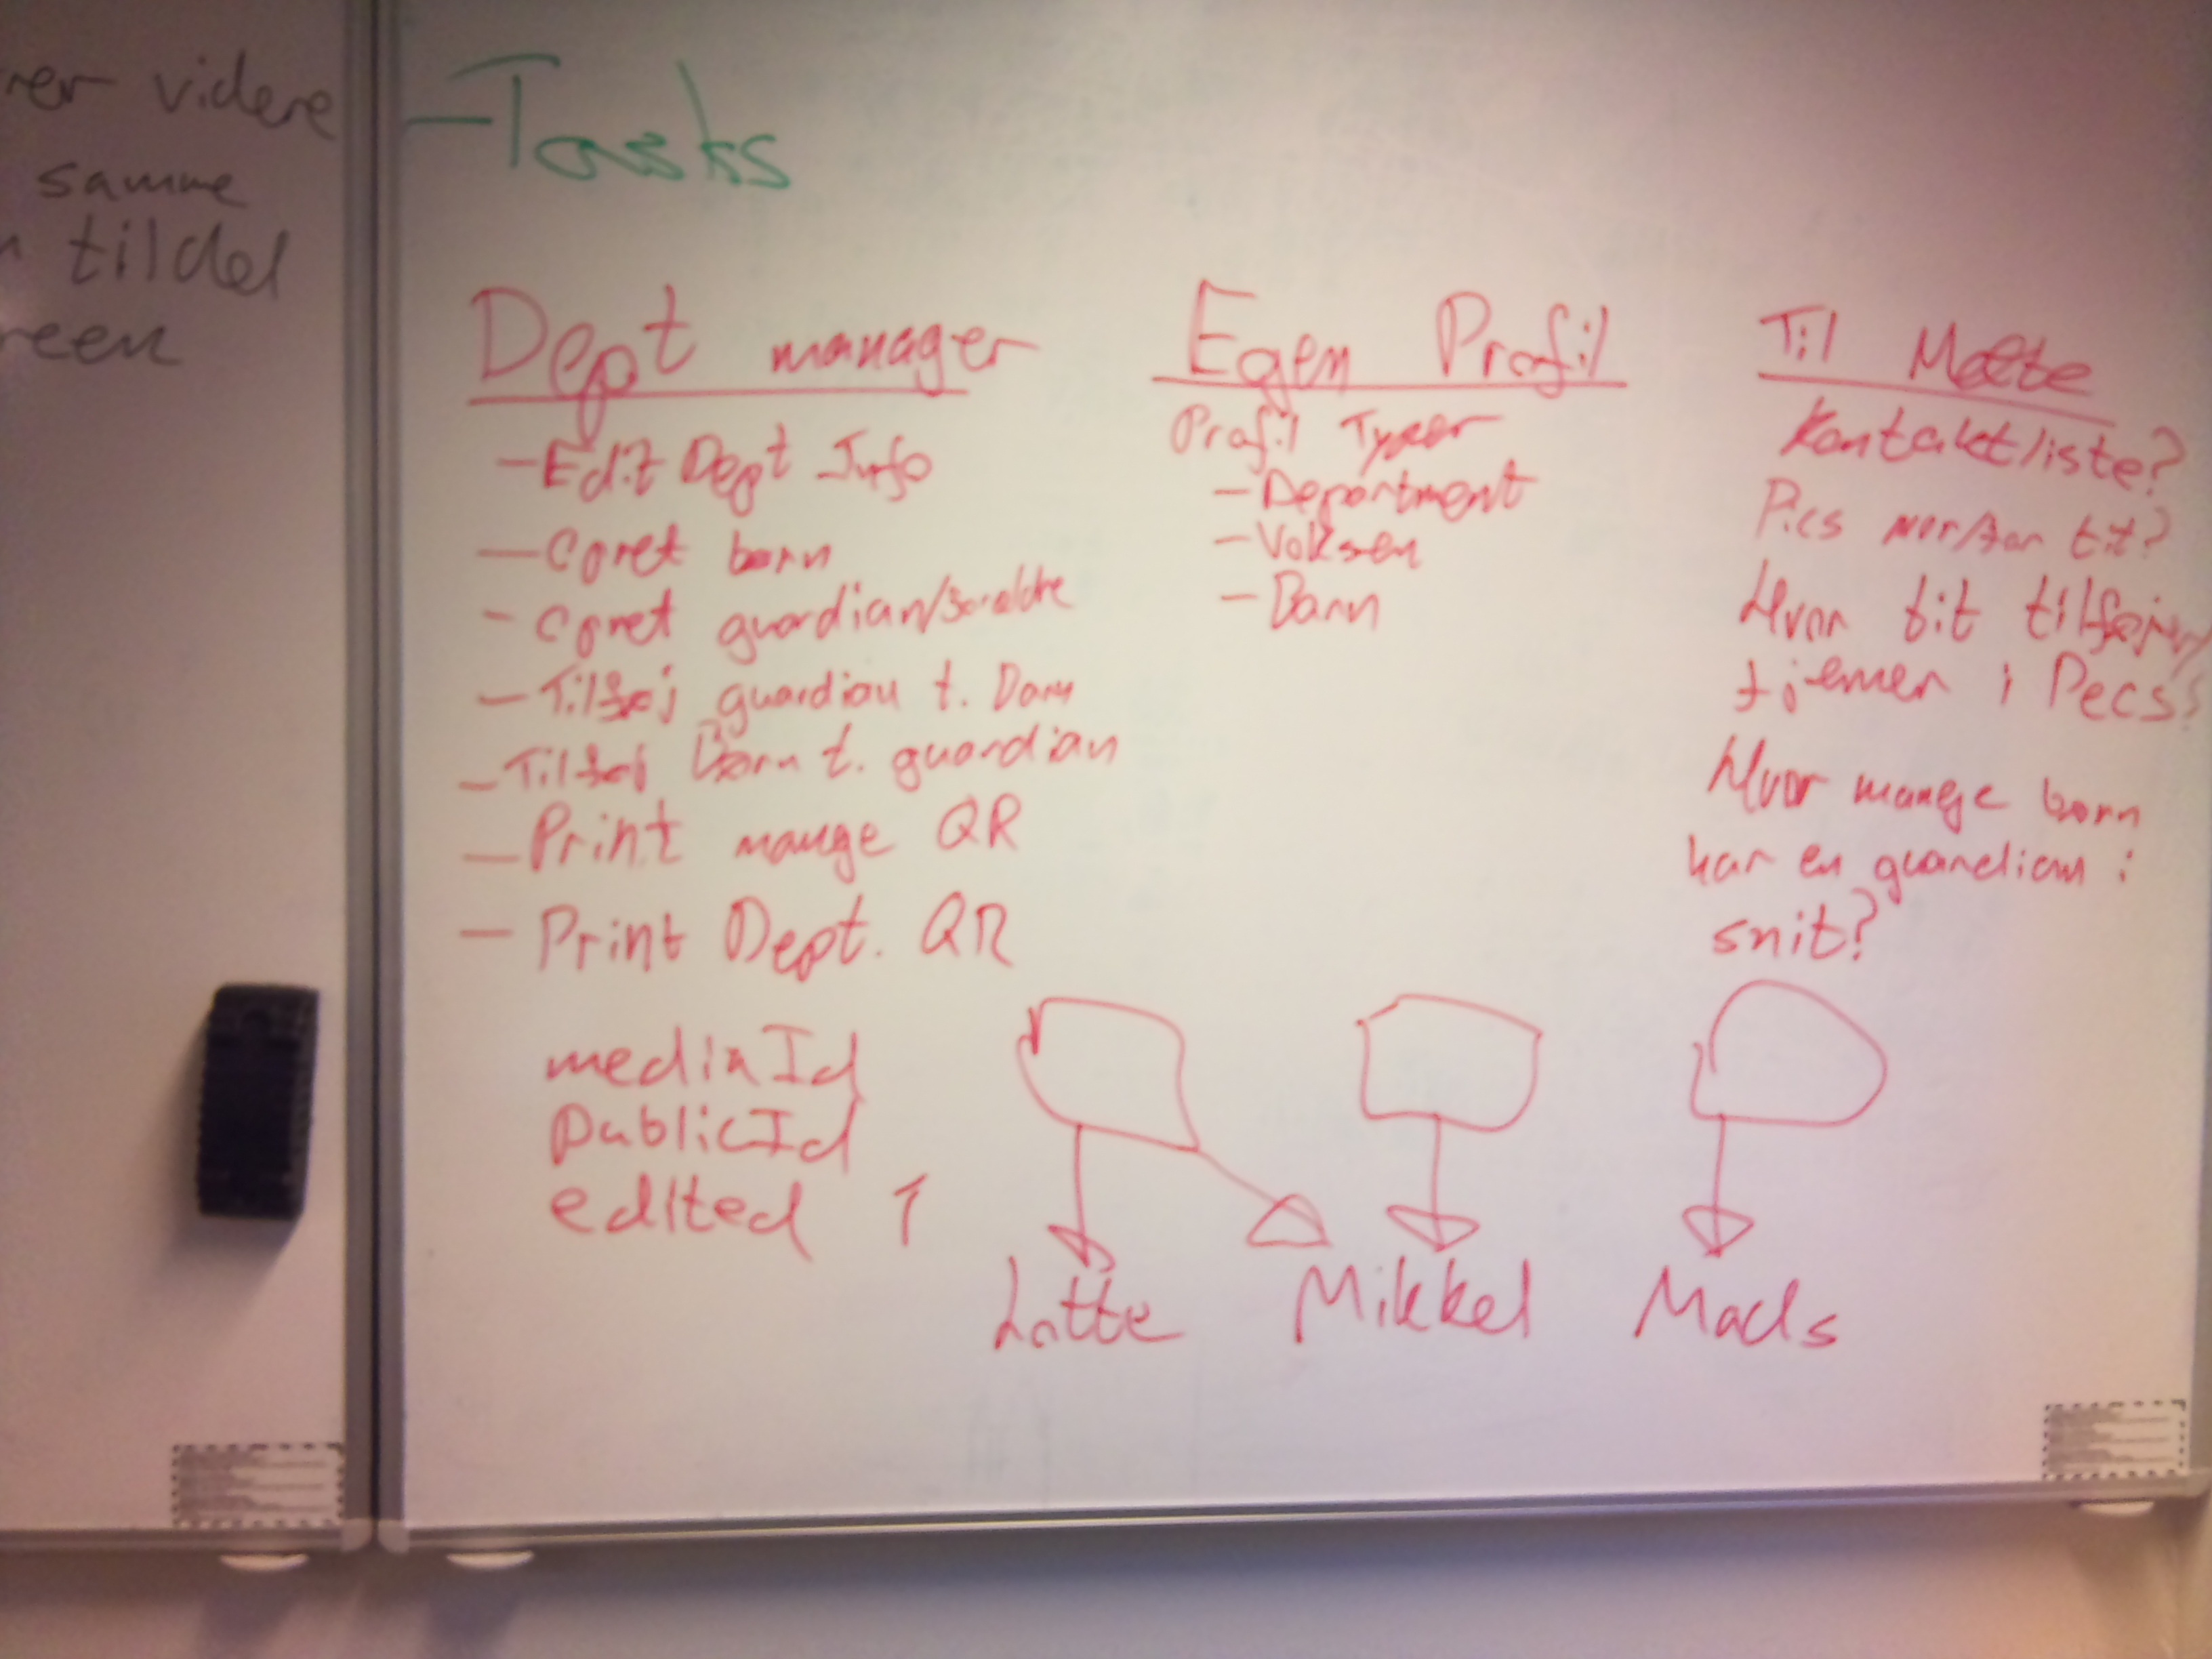 rer videre
samme
tildel
reen
Tasks
Dept manager
- Edit Dept Info
- Opret born
- Opret guardian/foraldre
- Tilføj guardian t. Barn
- Tilføj Barn t. guardian
- Print mange QR
- Print Dept. QR
mediaId
publicId
edited 1
Egen Profil
Profil Typer
- Department
- Voksen
- Barn
Til Mette
Kontaktliste?
Pics tit?
Hvor tit tilføjer
fjerner i Pecs?
Hvor mange born
har en guardian i
snit?
Lotte Mikkel Mads